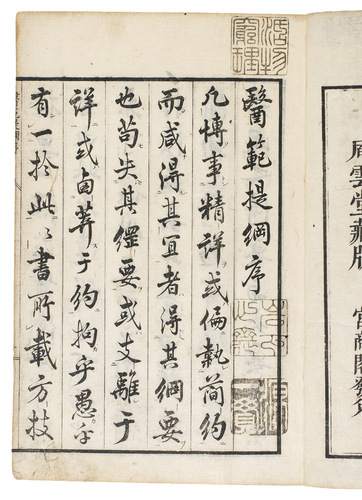 醫範提綱序
凡博事精詳或偏執簡約
而咸得其宜者得其綱要
也苟失其綱要或支離于
詳或鹵莽于約拘乎愚乎
有一於此此書所載方技
雲堂藏版